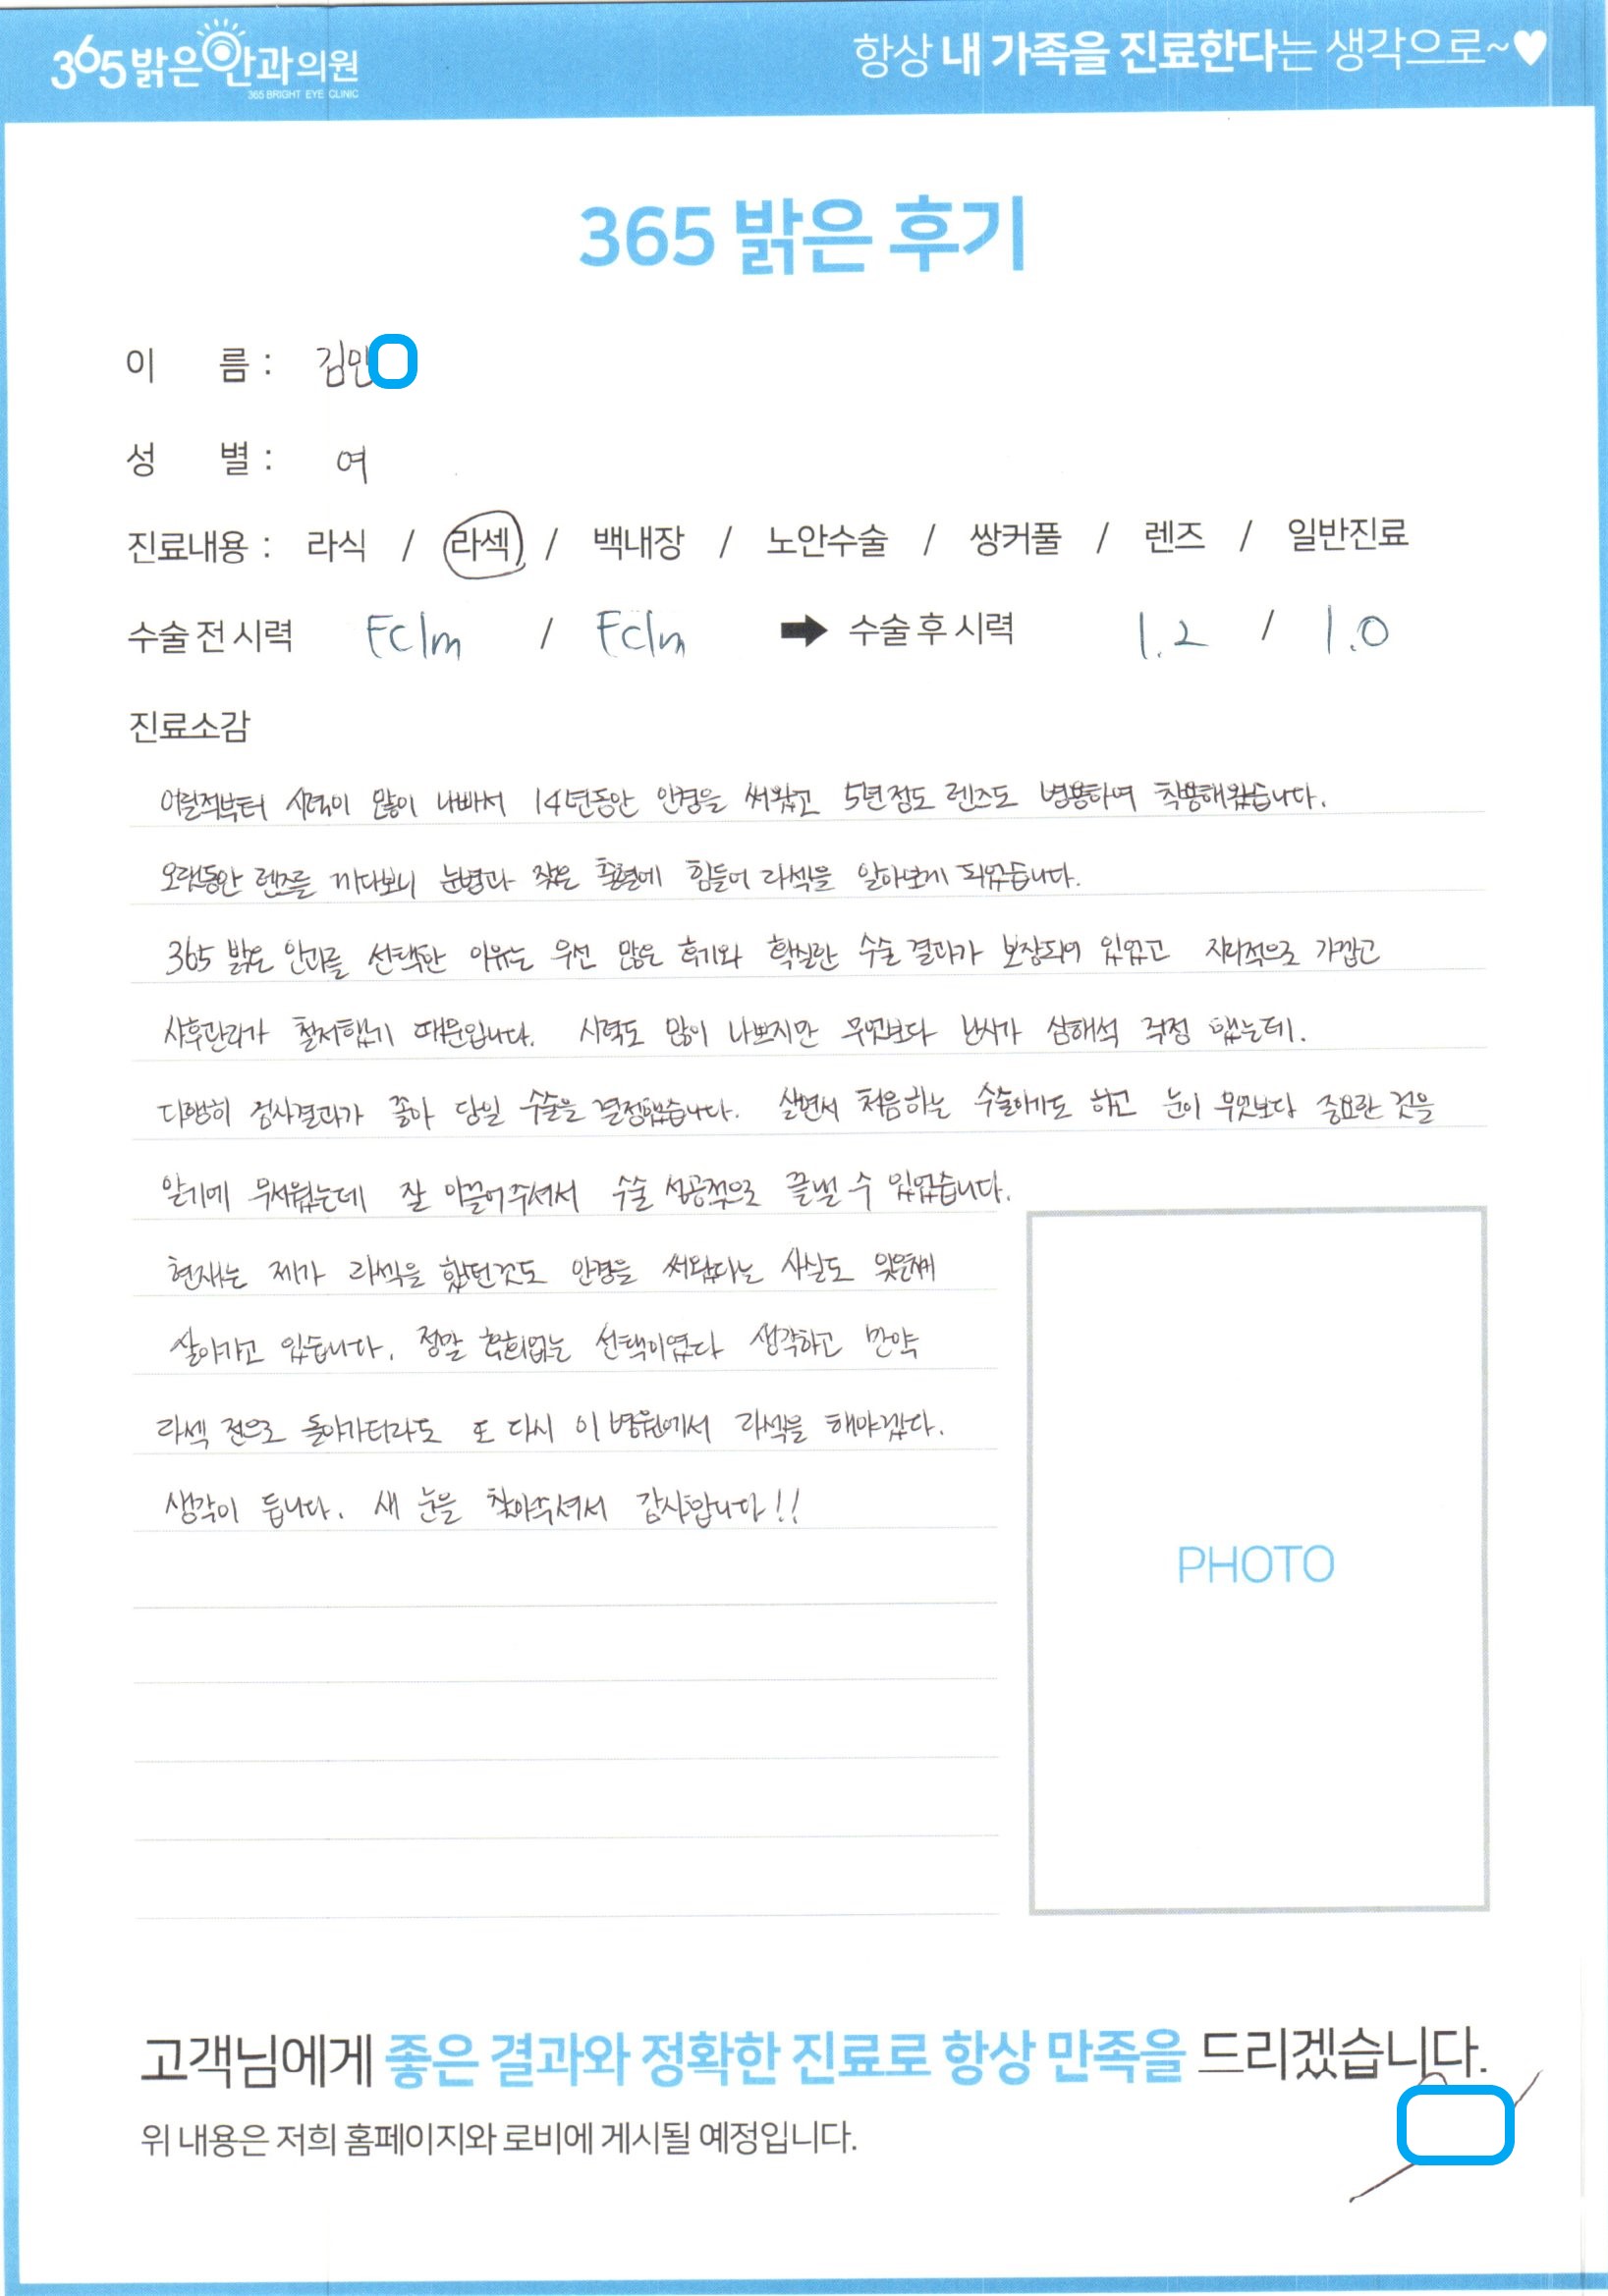 365밝은안과의원
365 BRIGHT EYE CLINIC
항상 내 가족을 진료한다는 생각으로~♥
365 밝은 후기
이 름 : 김민
성 별 : 여
진료내용 : 라식 / 라섹 / 백내장 / 노안수술 / 쌍커풀 / 렌즈 / 일반진료
수술 전 시력 Fc1m / Fc1m ➡ 수술 후 시력 1.2 / 1.0
진료소감
어릴적부터 시력이 많이 나빠서 14년동안 안경을 써왔고 5년정도 렌즈도 병용하여 착용해왔습니다.
오랫동안 렌즈를 끼다보니 눈병과 잦은 충혈에 힘들어 라섹을 알아보게 되었습니다.
365 밝은 안과를 선택한 이유는 우선 많은 후기와 확실한 수술 결과가 보장되어 있었고 지리적으로 가깝고
사후관리가 철저했기 때문입니다. 시력도 많이 나쁘지만 무엇보다 난시가 심해서 걱정 했는데.
다행히 검사결과가 좋아 당일 수술을 결정했습니다. 살면서 처음하는 수술이기도 하고 눈이 무엇보다 중요한 것을
알기에 무서웠는데 잘 이끌어주셔서 수술 성공적으로 끝낼 수 있었습니다.
현재는 제가 라섹을 했던것도 안경을 써왔다는 사실도 잊은채
살아가고 있습니다. 정말 후회없는 선택이였다 생각하고 만약
라섹 전으로 돌아가더라도 또 다시 이 병원에서 라섹을 해야겠다.
생각이 듭니다. 새 눈을 찾아주셔서 감사합니다!!
PHOTO
고객님에게 좋은 결과와 정확한 진료로 항상 만족을 드리겠습니다.
위 내용은 저희 홈페이지와 로비에 게시될 예정입니다.